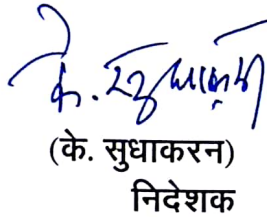 के. सुधाकरन
(के. सुधाकरन)
निदेशक